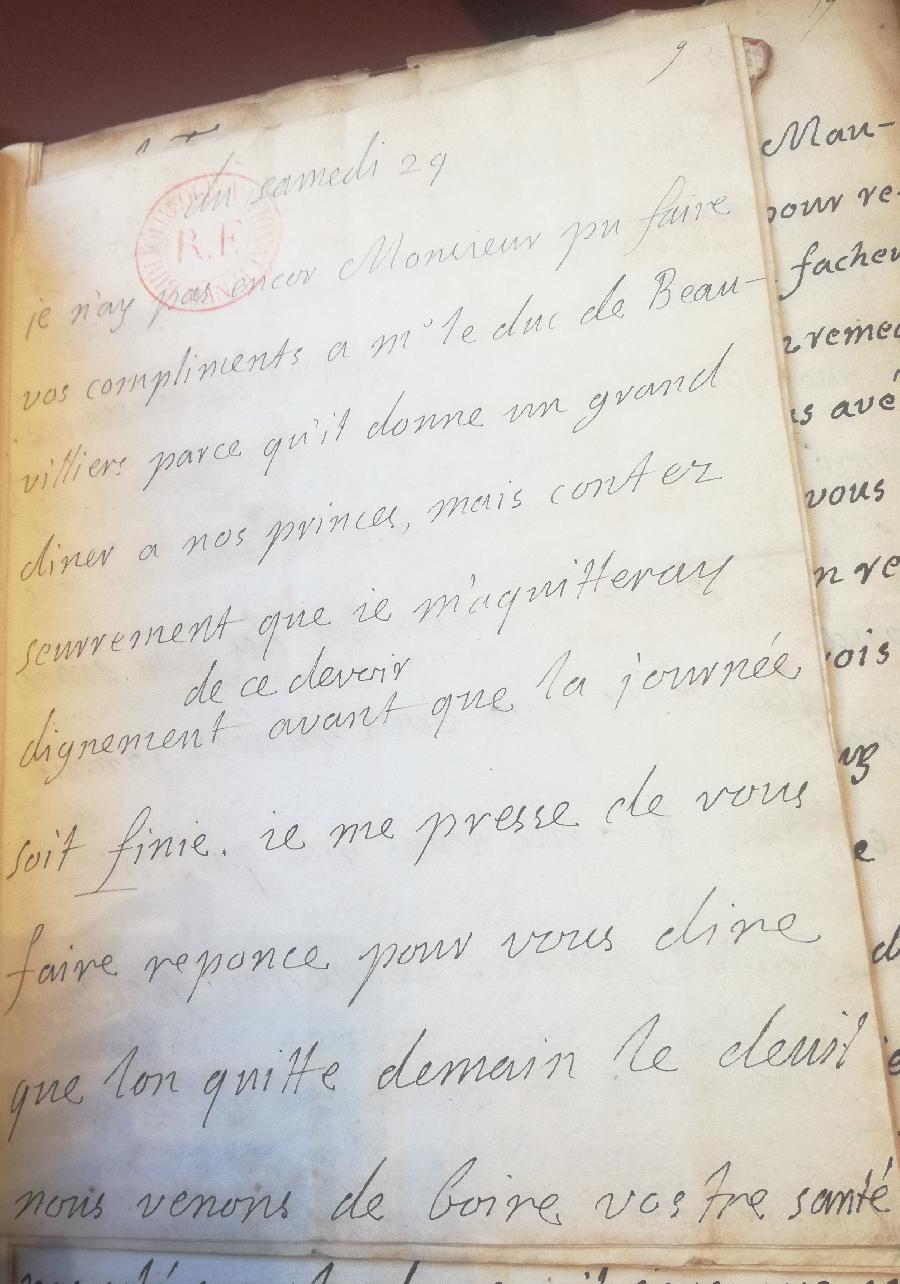 9
du samedi 29
R.F
je n'ay pas encor Monsieur pu faire
vos compliments a mr le duc de Beau-
villiers parce qu'il donne un grand
diner a nos princes, mais contez
seurrement que ie m'aquitteray
de ce devoir
dignement avant que la journée
soit finie. ie me presse de vous
faire reponce pour vous dire
que lon quitte demain le deuil
nous venons de boire vostre santé
Mau-
pour re-
facheu
remed
avé
vous